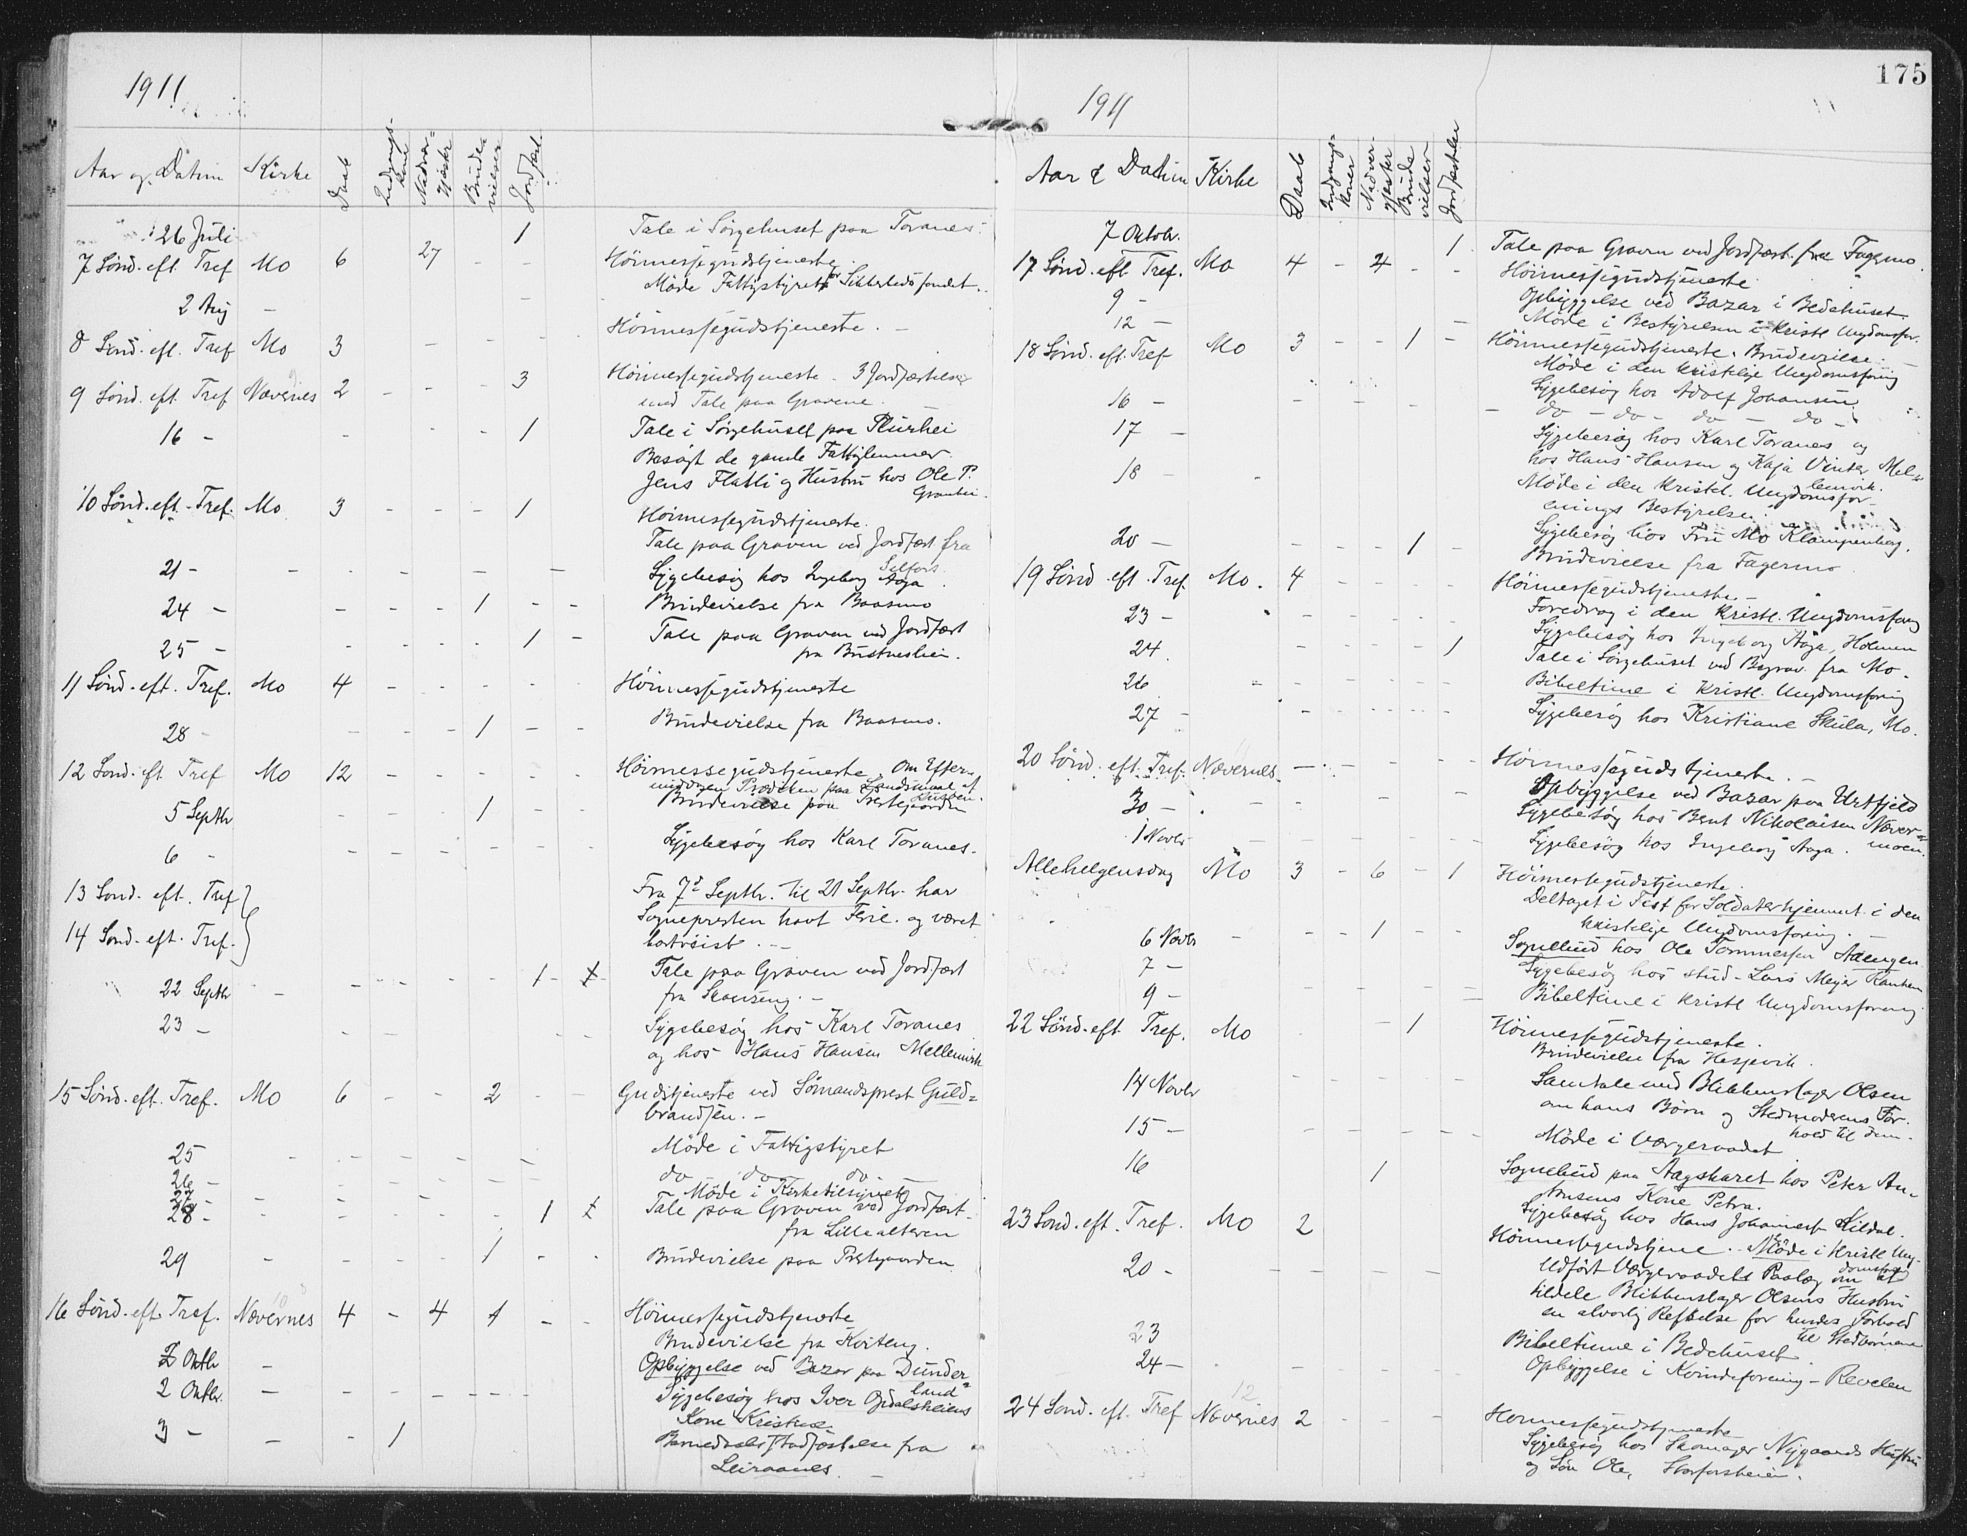 1911
Aar og Datum Kirke Daab Nadver- gjester Brude vielser Jordfæst.
26 Juli 1 Tale i Sørgehuset paa Toranes.
7 Sønd. eft. Tref Mo 6 27 - - Höimessegudstjeneste
Möde Fattigstyret for Sikkerhedsfondet.
2 Aug -
8 Sønd. eft. Tref Mo 3 - - - Höimessegudstjeneste. -
9 Sønd. eft. Tref Nævernes 2 - - - 3 Höimessegudstjeneste - 3 Jordfæstelser
med Tale paa Gravene.
16 - 1 Tale i Sørgehuset paa
Besøgt de gamle Fattiglemmer
Jens Flatli og Hustru hos Ole P.
10 Sønd. eft. Tref. Mo 3 - - - 1 Höimessegudstjeneste.
Tale paa Graven ved Jordfæst fra
Selfors.
21 - Sygebesøg hos Ingeborg Aaga.
24 - 1 - - Brudevielse fra Baasmo
25 - 1 - Tale paa Graven ved Jordfæst
fra Bustneslien.
11 Sønd. eft. Tref. Mo 4 - - - - Höimessegudstjeneste
28 - 1 - - Brudevielse fra Baasmo.
12 Sønd. eft Tref Mo 12 - - - - Höimessegudstjeneste. Om Efter-
middagen Prædiken paa Landsmaal af
5 Septbr 1 - Brudevielse paa Prestegaarden
6 - Sygebesøg hos Karl Toranes.
13 Sønd. eft. Tref } Fra 7d Septbr. til 21 Septbr. har
Sognepresten havt Ferie. og været
14 Sønd. eft. Tref. } bortreist. -
22 Septbr - 1 Tale paa Graven ved Jordfæst
fra Skonseng. -
23 - Sygebesøg hos Karl Toranes
og hos Hans Hansen Mellemvik
15 Sønd. eft. Tref. Mo 6 - - 2 - - Gudstjeneste ved Sömandsprest Guld-
brandsen. -
25 Möde i Fattigstyret
26 - do do do -
27 - Möde i Kirketilsynet
28 - 1 Tale paa Graven ved Jordfæst
fra Lillealteren
29 - 1 - - Brudevielse paa Prestgaarden
16 Sønd. eft. Tref. Nævernes 4 - 4 1 - - Höimessegudstjeneste
Brudevielse fra Kviteng.
2 Oktbr - Opbyggelse ved Bazar paa Dunder-
land
2 Oktbr. - Sygebesøg hos Iver Ørdalsheiens
Kone Kristine
3 - 1 Barnedaabsstadfæstelse fra
Leiraanes. -
1911
175
Aar & Datum Kirke Daab Indgangs- koner Nadver- gjester Brude vielser Jordfæstelser
7 Oktobr. 1. Tale paa Graven ved Jordfæst. fra Fagermo.
17 Sønd. eft. Tref. Mo 4 - 4 - - Höimessegudstjeneste
9 - Opbyggelse ved Bazar i Bedehuset
12 - Möde i Bestyrelsen i kristl Ungdomsfor.
18 Sønd. eft. Tref Mo 3 - - 1 - Höimessegudstjeneste. Brudevielse.
Möde i den kristelige Ungdomsforening
16 - Sygebesøg hos Adolf Johansen
17 - do - do - do - do -
18 - Sygebesøg hos Karl Toranes og
hos Hans Hansen og Kaja Vinter Mel-
lemvik.
Möde i den kristel. Ungdomsfor-
enings Bestyrelse.
20 - 1 - Sygebesøg hos Fru Mo Klampenborg.
Brudevielse fra Fagermo.
19 Sønd. eft. Tref. Mo. 4 - - - - Höimessegudstjeneste. -
23 - Foredrag i den kristl. Ungdomsforeng
Sygebesøg hos Ingeborg Aaga, Holmen
24 1 Tale i Sørgehuset ved Begrav. fra Mo.
26 Bibeltime i kristl. Ungdomsforening
27 - Sygebesøg hos Kristiane Skula, Mo.
20 Sønd. eft. Tref. Nævernes - - - - - Höimessegudstjeneste. -
30 - Opbyggelse ved Bazar paa Urtfjeld
Sygebesøg hos Bent Nikolaisen Næver-
moen.
1 Novbr Sygebesøg hos Ingeborg Aaga.
Allehelgensdag Mo 3 - 6 - 1 Höimessegudstjeneste.
Deltaget i Fest for Soldaterhjemmet i den
kristelige Ungdomsforening. -
6 Novbr - 1 - - Sognebud hos Ole Tommessen Aaengen
7 - Sygebesøg hos stud. Lars Mejer
9 - Bibeltime i kristl Ungdomsforening
22 Sønd. eft Tref. Mo - 1 Höimessegudstjeneste.
Brudevielse fra Hesjevik.
14 Novbr Samtale med Blikkenslager Olsen
om hans Børn og Stedmoderens For-
hold til dem.
15 - Möde i Værgeraadet
16 1 Sognebud paa Aagskaret hos Peter An-
tonsens Kone Petra.
Sygebesøg hos Hans Johannes Kildal.
23 Sønd. eft. Tref. Mo 2 Höimessegudstjene. - Möde i kristl Ung-
domsfor.
20 - Udført Værgeraadets Paalæg om at
tildele Blikkenslager Olsens Hustru
en alvorlig Refselse for hendes Forhold
til Stedbørnene
23 Bibeltime i Bedehuset.
24 - Opbyggelse i Kvindeforening - Revelen
12
24 Sønd. eft. Tref Nævernes 2 - - - - Höimessegudstjeneste
Sygebesøg hos Skomager Nygaards Hustru
og Søn Ole, Storforsheien.